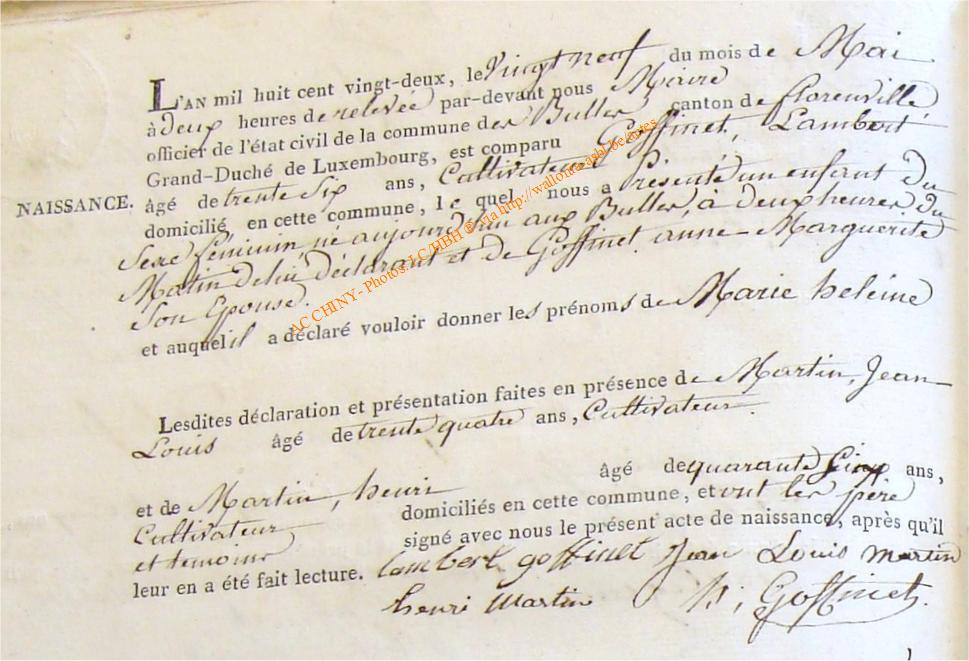 L'AN mil huit cent vingt-deux, le vingt neuf du mois de Mai
à deux heures de relevée par-devant nous Maire
officier de l'état civil de la commune des Bulles, canton de florenville
Grand-Duché de Luxembourg, est comparu Goffinet, Lambert
NAISSANCE. âgé de trente Six ans, Cultivateur
domicilié en cette commune, le quel nous a Présenté un enfant du
Sexe féminin, né aujourd'hui aux Bulles, à deux heures du
Matin de lui déclarant et de Goffinet, anne-Marguerite
Son Epouse.
et auquel il a déclaré vouloir donner les prénoms de Marie heléine
Lesdites déclaration et présentation faites en présence de Martin, Jean
Louis âgé de trente quatre ans, Cultivateur.
et de Martin, henri âgé de quarante ans,
Cultivateur domiciliés en cette commune, et ont les père
et temoins signé avec nous le présent acte de naissance, après qu'il
leur en a été fait lecture. lambert goffinet Jean Louis martin
henri martin Goffinet.
AC CHINY - Photos: LC/HBH ® via http://wallonica-asbl.be/actes